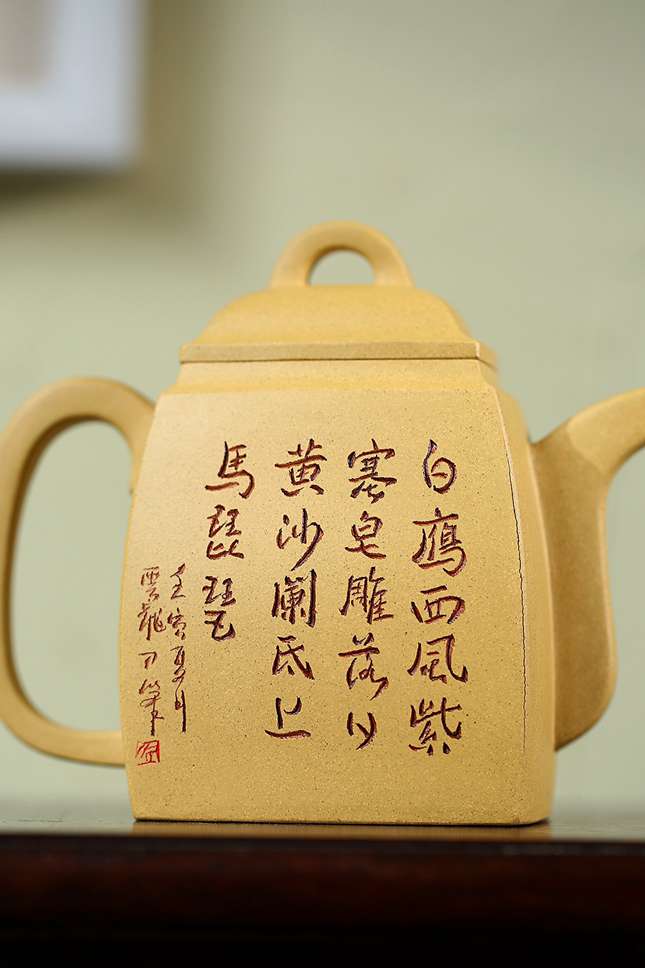 白鴈西風紫
塞皂雕落日
黃沙閼氏上
馬琵琶
壬寅夏月
雲龍刀筆